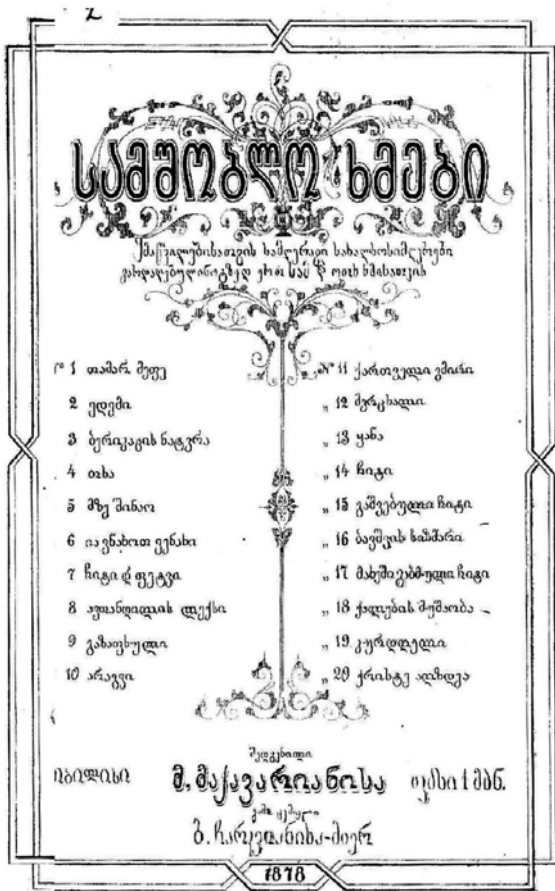 2
სამშობლო ხმები
ყმაწვილებისათვის სამღერალი სახალხო სიმღერები
გარდაღებული ნოტზედ ერთ სამ და ოთხ ხმისათვის
№ 1 თამარ მეფე
2 ედემი
3 ბერიკაცის ნატვრა
4 თხა
5 მზე შინაო
6 ია ვნახოთ ვენახი
7 ჩიტი და ფეტვი
8 ავთანდილის ლექსი
9 გაზაფხული
10 არაგვი
№ 11 ქართველი გმირი
„ 12 მერცხალი
„ 13 ყანა
„ 14 ჩიტი
„ 15 გაშვებული ჩიტი
„ 16 ბავშვის სიზმარი
„ 17 მახეში გაბმული ჩიტი
„ 18 ქალების მუშაობა
„ 19 კურდღელი
„ 20 ქრისტე აღზდგა
შედგენილი
მ. მაჭავარიანისა
ფასი 1 მან.
გამოცემული
1878